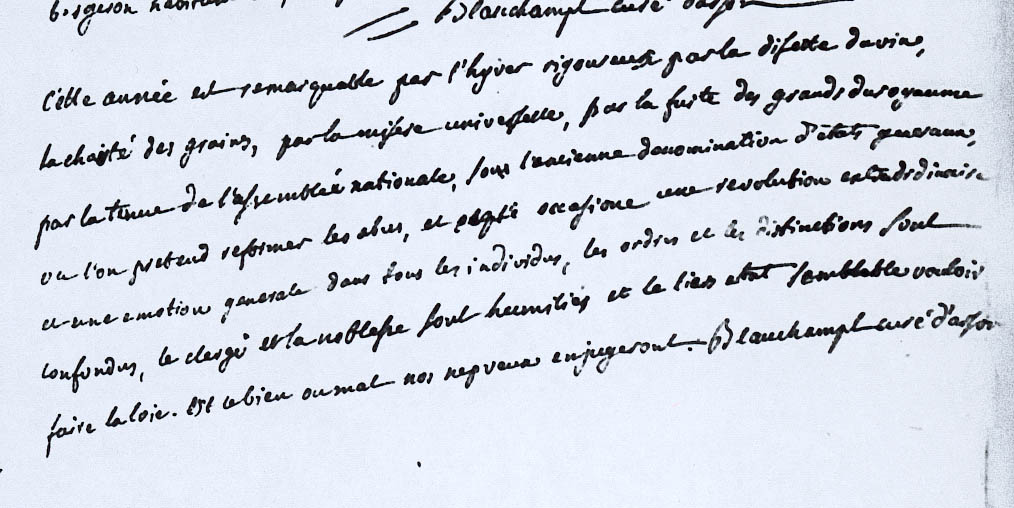 Blauchampt curé d'aspr
Cette année est remarquable par l'hyver rigoureux par la disette du vin,
la charté des grains, par la misere universelle, par la fuite des grands du royaume
par la tenue de l'assemblée nationale, sous l'ancienne denomination d'états generaux,
ou l'on pretend reformer les abus, et occasione une revolution extraordinaire
et une emotion generale dans tous les individus, les ordres et les distinctions sont
confondus, le clergé et la noblesse sont humiliés et le tiers etat semblable vouloir
faire la loie. Est ce bien ou mal nos nepveux en jugeront. Blauchampt curé d'aspr